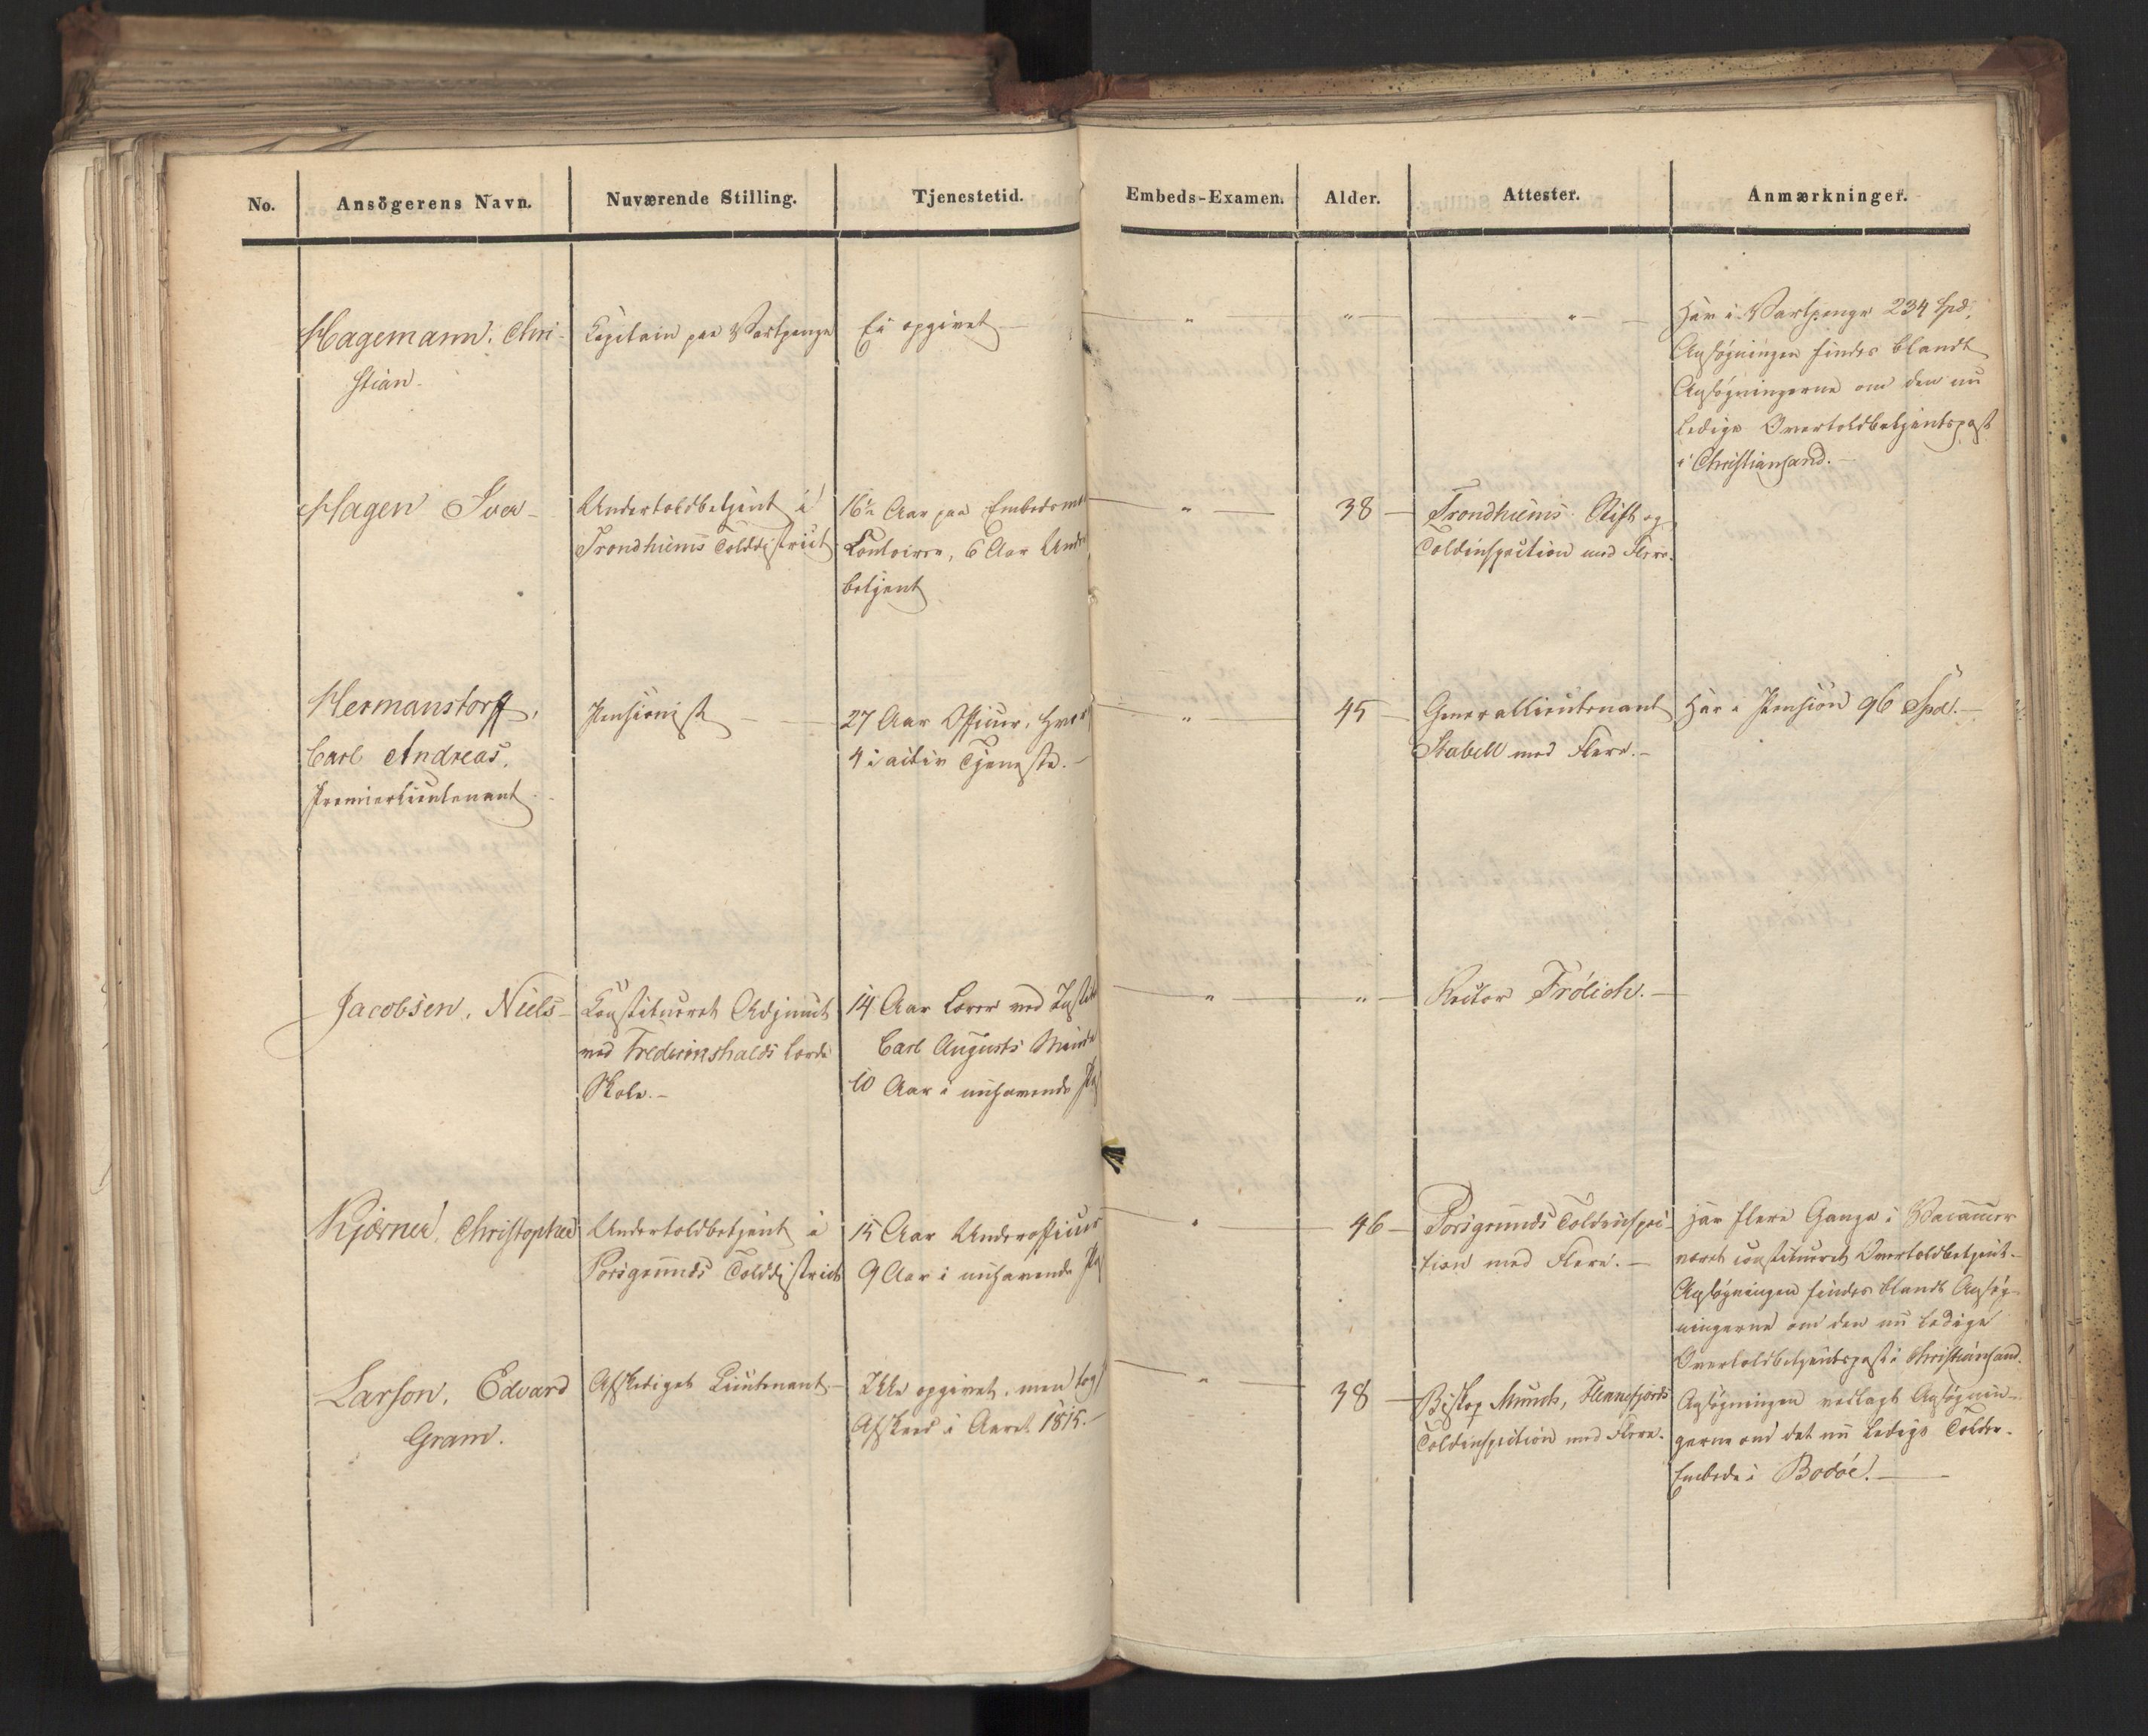 No. Ansögerens Navn. Nuværende Stilling. Tjenestetid. Embeds-Examen. Alder. Attester. Anmærkninger.
Hagemann, Chri-
stian.
Capitain paa Vartpenge
Ei opgivet
" " "
Har i Vartpenge 234 Spd.
Ansøgningen findes blandt
Ansøgningerne om den nu
ledige Overtoldbetjentspost
i Christiansand.
Hagen Iver
Undertoldbetjent i
Trondhiems Tolddistrict
16½ Aar paa Embedsmd
Contoirer, 6 Aar Under
betjent
"
38
Trondhiems Stift og
Toldinspection med Flere.
Hermanstorff,
Carl Andreas.
Premierlieutenant
Pensionist
27 Aar Officier, hvor
4 i activ Tjeneste.
"
45
Generallieutenant
Stabell med Flere.
Har i Pension 96 Spd.
Jacobsen, Niels
Constitueret Adjunct
ved Fredericshalds lærde
Skole.
14 Aar Lærer ved Instit
Carl Augusts Minde
10 Aar i nuhavende Pos
" "
Rector Frölich.
Kjørner, Christopher
Undertoldbetjent i
Porsgrunds Tolddistrict
15 Aar Underofficier
9 Aar i nuhavende Pos
"
46
Porsgrunds Toldinspec-
tion med Flere.
har flere Gange i Vacancer
været constitueret Overtoldbetjent.
Ansøgningen findes blandt Ansøg-
ningerne om den nu ledige
Overtoldbetjentspost i Christiansand.
Larson, Edvard
Gram.
Afskediget Lieutenant
Ikke opgivet, men tog
Afsked i Aaret 1815.
"
38
Biskop Munch, Flennefjords
Toldinspection med Flere.
Ansøgningen vedlagt Ansøgnin-
gerne om det nu ledige Tolder-
Embede i Bodöe.